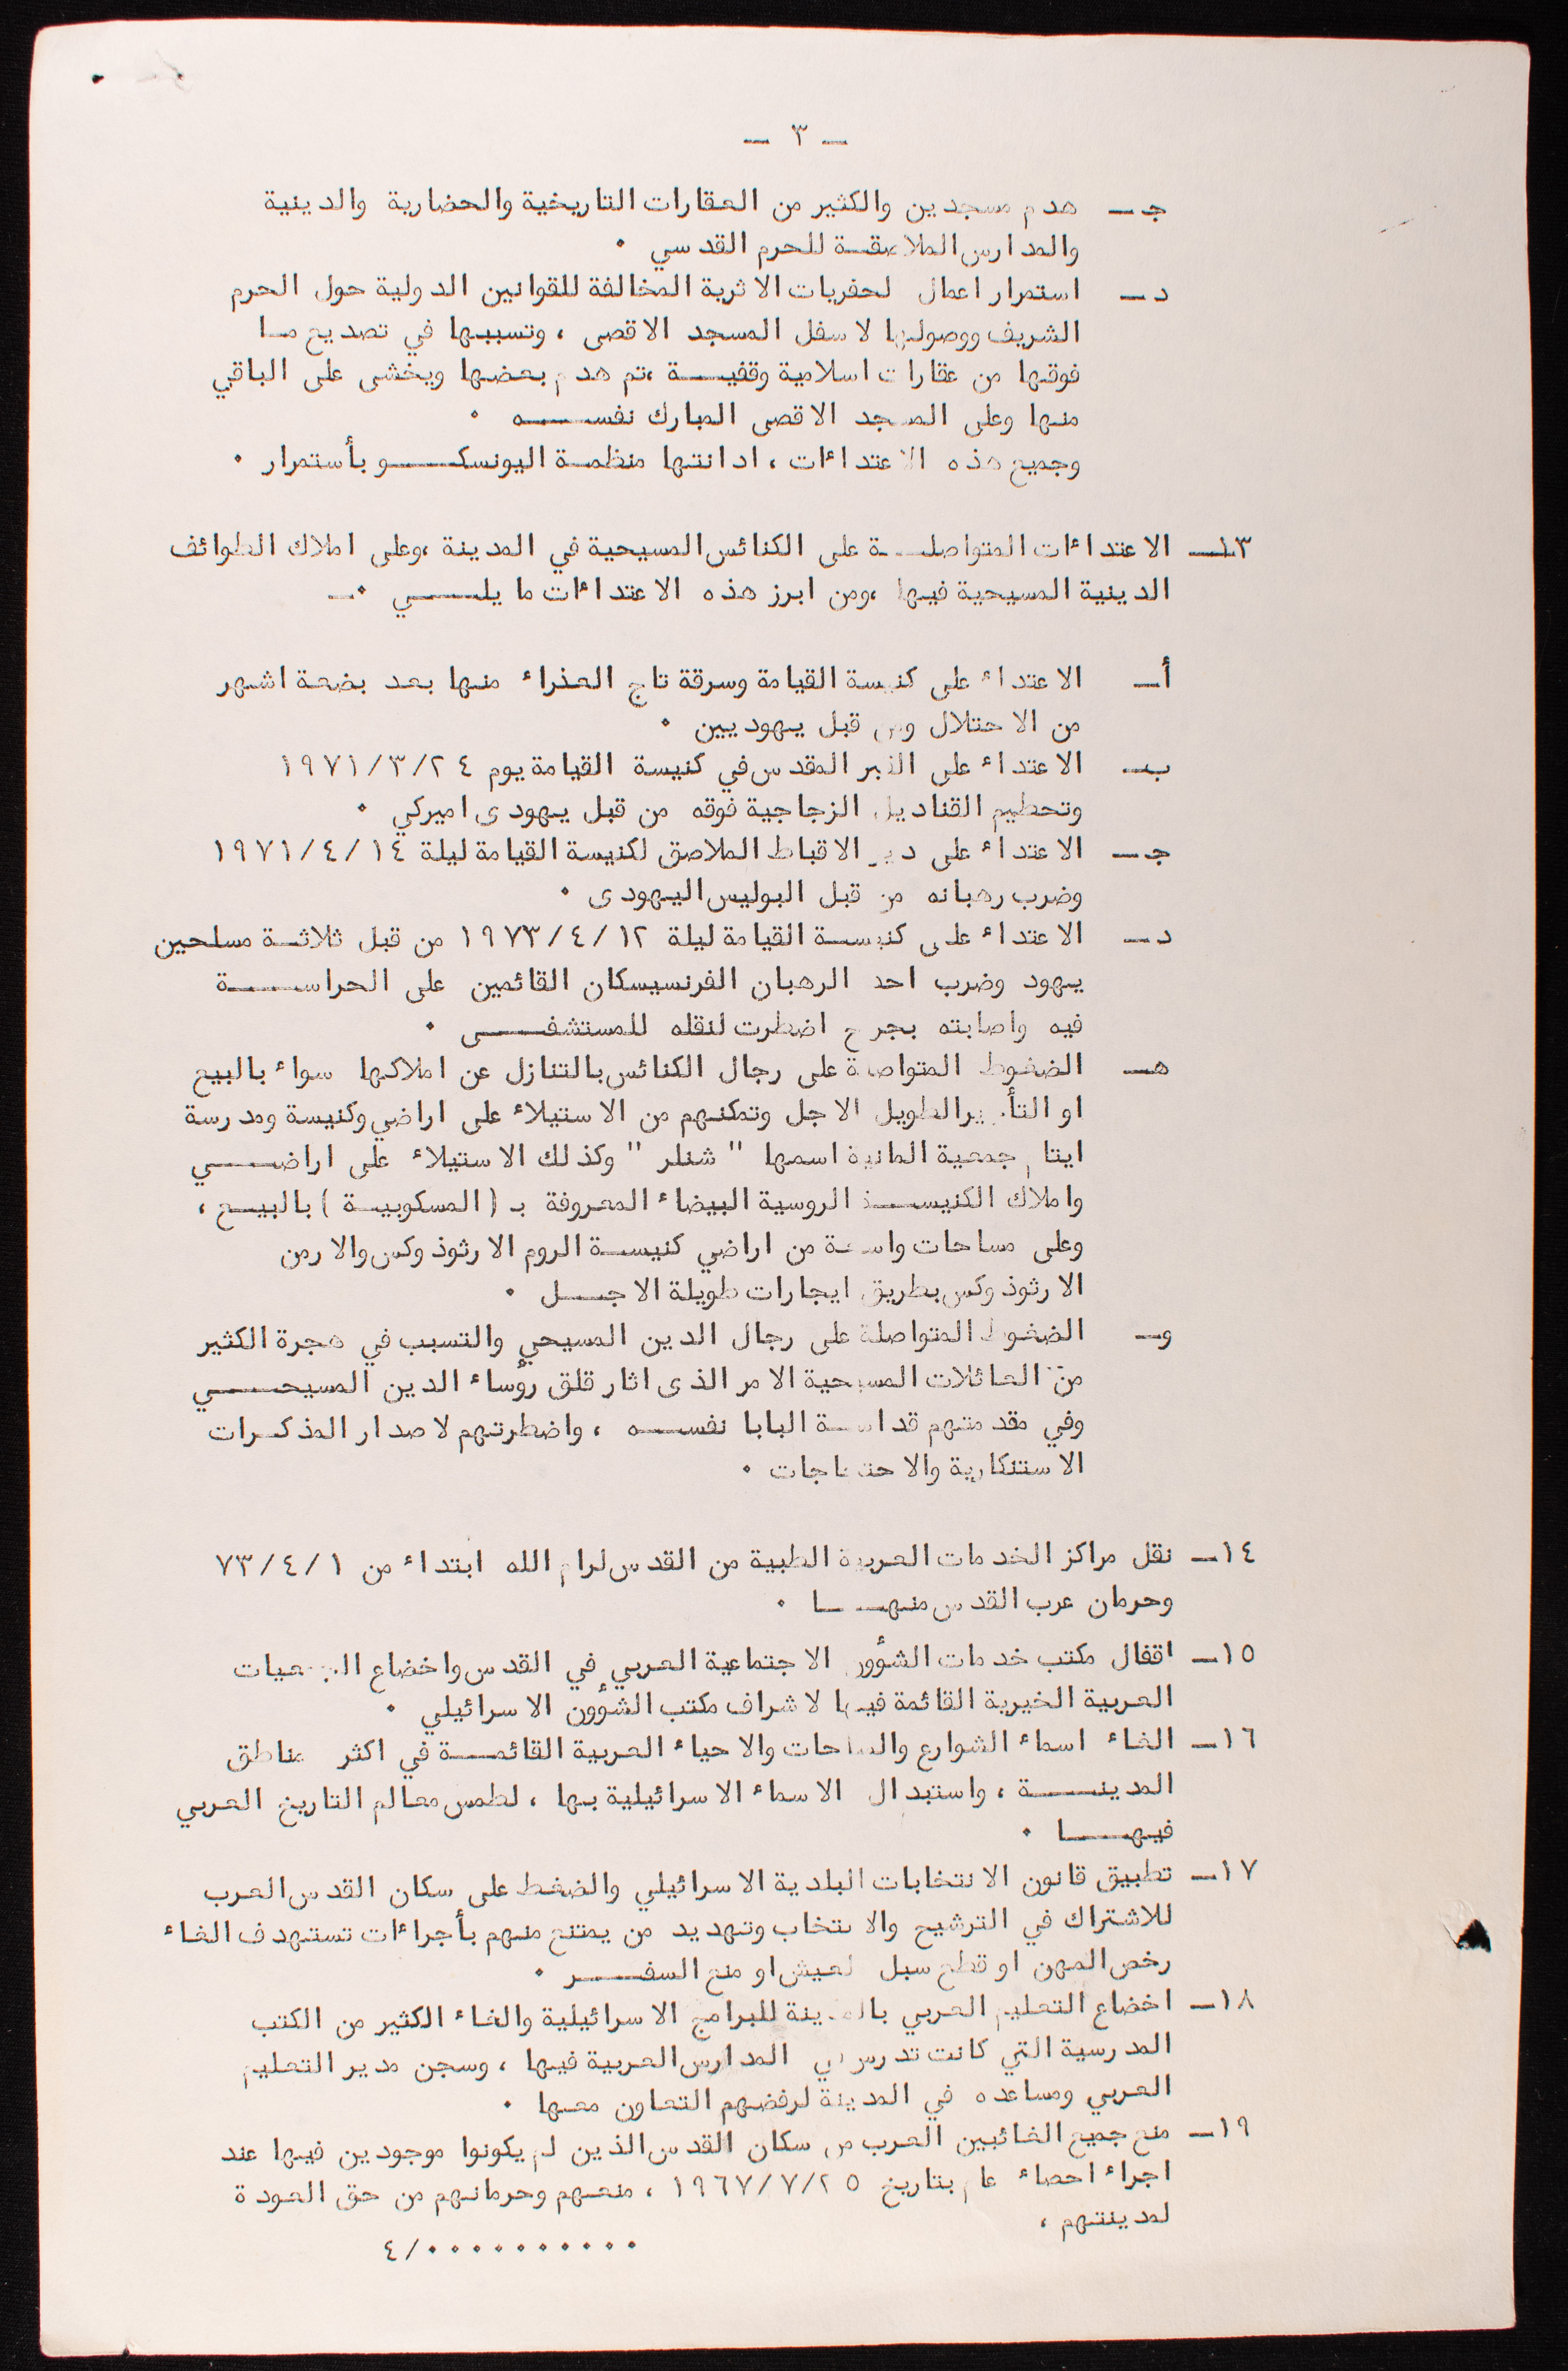 — ٣ —
جـ — هدم مسجدين والكثير من العقارات التاريخية والحضارية والدينية
والمدارس الملاصقة للحرم القدسي ٠
د — استمرار اعمال لحفريات الاثرية المخالفة للقوانين الدولية حول الحرم
الشريف ووصولها لاسفل المسجد الاقصى ، وتسببها في تصديع ما
فوقها من عقارات اسلامية وقفيـــة ،تم هدم بعضها ويخشى على الباقي
منها وعلى المسجد الاقصى المبارك نفســـه ٠
وجميع هذه الاعتداءات ، ادانتها منظمة اليونسكـــو بأستمرار ٠
١٣ — الاعتداءات المتواصلـة على الكنائس المسيحية في المدينة ،وعلى املاك الطوائف
الدينية المسيحية فيها ،ومن ابرز هذه الاعتداءات ما يلـــي ٠—
أ — الاعتداء على كنيسة القيامة وسرقة تاج العذراء منها بعد بضعة اشهر
من الاحتلال ومن قبل يهوديين ٠
ب — الاعتداء على القبر المقدس في كنيسة القيامة يوم ١٩٧١/٣/٢٤
وتحطيم القناديل الزجاجية فوقه من قبل يهودى اميركي ٠
جـ — الاعتداء على دير الاقباط الملاصق لكنيسة القيامة ليلة ١٩٧١/٤/١٤
وضرب رهبانه من قبل البوليس اليهودى ٠
د — الاعتداء على كنيسـة القيامة ليلة ١٩٧٣/٤/١٢ من قبل ثلاثـة مسلحين
يهود وضرب احد الرهبان الفرنسيسكان القائمين على الحراســـة
فيه واصابته بجرح اضطرت لنقله للمستشفـــى ٠
هـ — الضغوط المتواصلة على رجال الكنائس بالتنازل عن املاكها سواء بالبيع
او التأجير الطويل الاجل وتمكنهم من الاستيلاء على اراضي وكنيسة ومدرسة
ايتام جمعية المانية اسمها " شنلر " وكذلك الاستيلاء على اراضـــي
واملاك الكنيســة الروسية البيضاء المعروفة بـ ( المسكوبيـة ) بالبيـع ،
وعلى مساحات واسعة من اراضي كنيسـة الروم الارثوذوكس والارمن
الارثوذوكس بطريق ايجارات طويلة الاجـــل ٠
و — الضغوط المتواصلة على رجال الدين المسيحي والتسبب في هجرة الكثير
من العائلات المسيحية الامر الذى اثار قلق رؤساء الدين المسيحـــي
وفي مقدمتهم قداسـة البابا نفســه ، واضطرتهم لاصدار المذكـرات
الاستنكارية والاحتجاجات ٠
١٤ — نقل مراكز الخدمات العربية الطبية من القدس لرام الله ابتداء من ٧٣/٤/١
وحرمان عرب القدس منهـــا ٠
١٥ — اقفال مكتب خدمات الشؤون الاجتماعية العربي في القدس واخضاع الجمعيات
العربية الخيرية القائمة فيها لاشراف مكتب الشؤون الاسرائيلي ٠
١٦ — الغاء اسماء الشوارع والساحات والاحياء العربية القائمــة في اكثر مناطق
المدينـــة ، واستبدال الاسماء الاسرائيلية بها ، لطمس معالم التاريخ العربي
فيهـــا ٠
١٧ — تطبيق قانون الانتخابات البلدية الاسرائيلي والضغط على سكان القدس العرب
للاشتراك في الترشيح والانتخاب وتهديد من يمتنع منهم بأجراءات تستهدف الغاء
رخص المهن او قطع سبل لعيش او منع السفـــر ٠
١٨ — اخضاع التعليم العربي بالمدينة للبرامج الاسرائيلية والغاء الكثير من الكتب
المدرسية التي كانت تدرس في المدارس العربية فيها ، وسجن مدير التعليم
العربي ومساعده في المدينة لرفضهم التعاون معها ٠
١٩ — منع جميع الغائبين العرب من سكان القدس الذين لم يكونوا موجودين فيها عند
اجراء احصاء عام بتاريخ ١٩٦٧/٧/٢٥ ، منعهم وحرمانهم من حق العودة
لمدينتهم ،
٤/٠٠٠٠٠٠٠٠٠٠